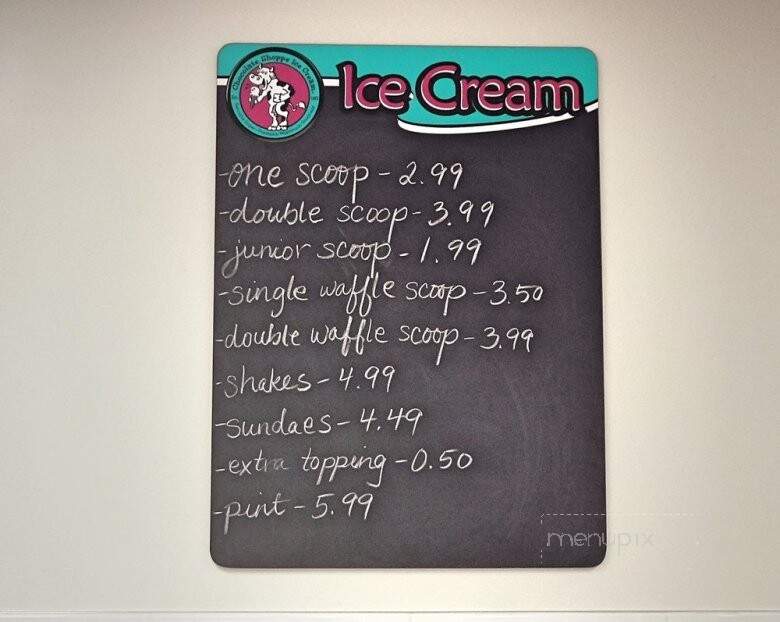 Chocolate Shoppe Ice Cream
Ice Cream
-one scoop - 2.99
-double scoop - 3.99
-junior scoop - 1.99
-single waffle scoop - 3.50
-double waffle scoop - 3.99
-shakes - 4.99
-sundaes - 4.49
-extra topping - 0.50
-pint - 5.99
menupix